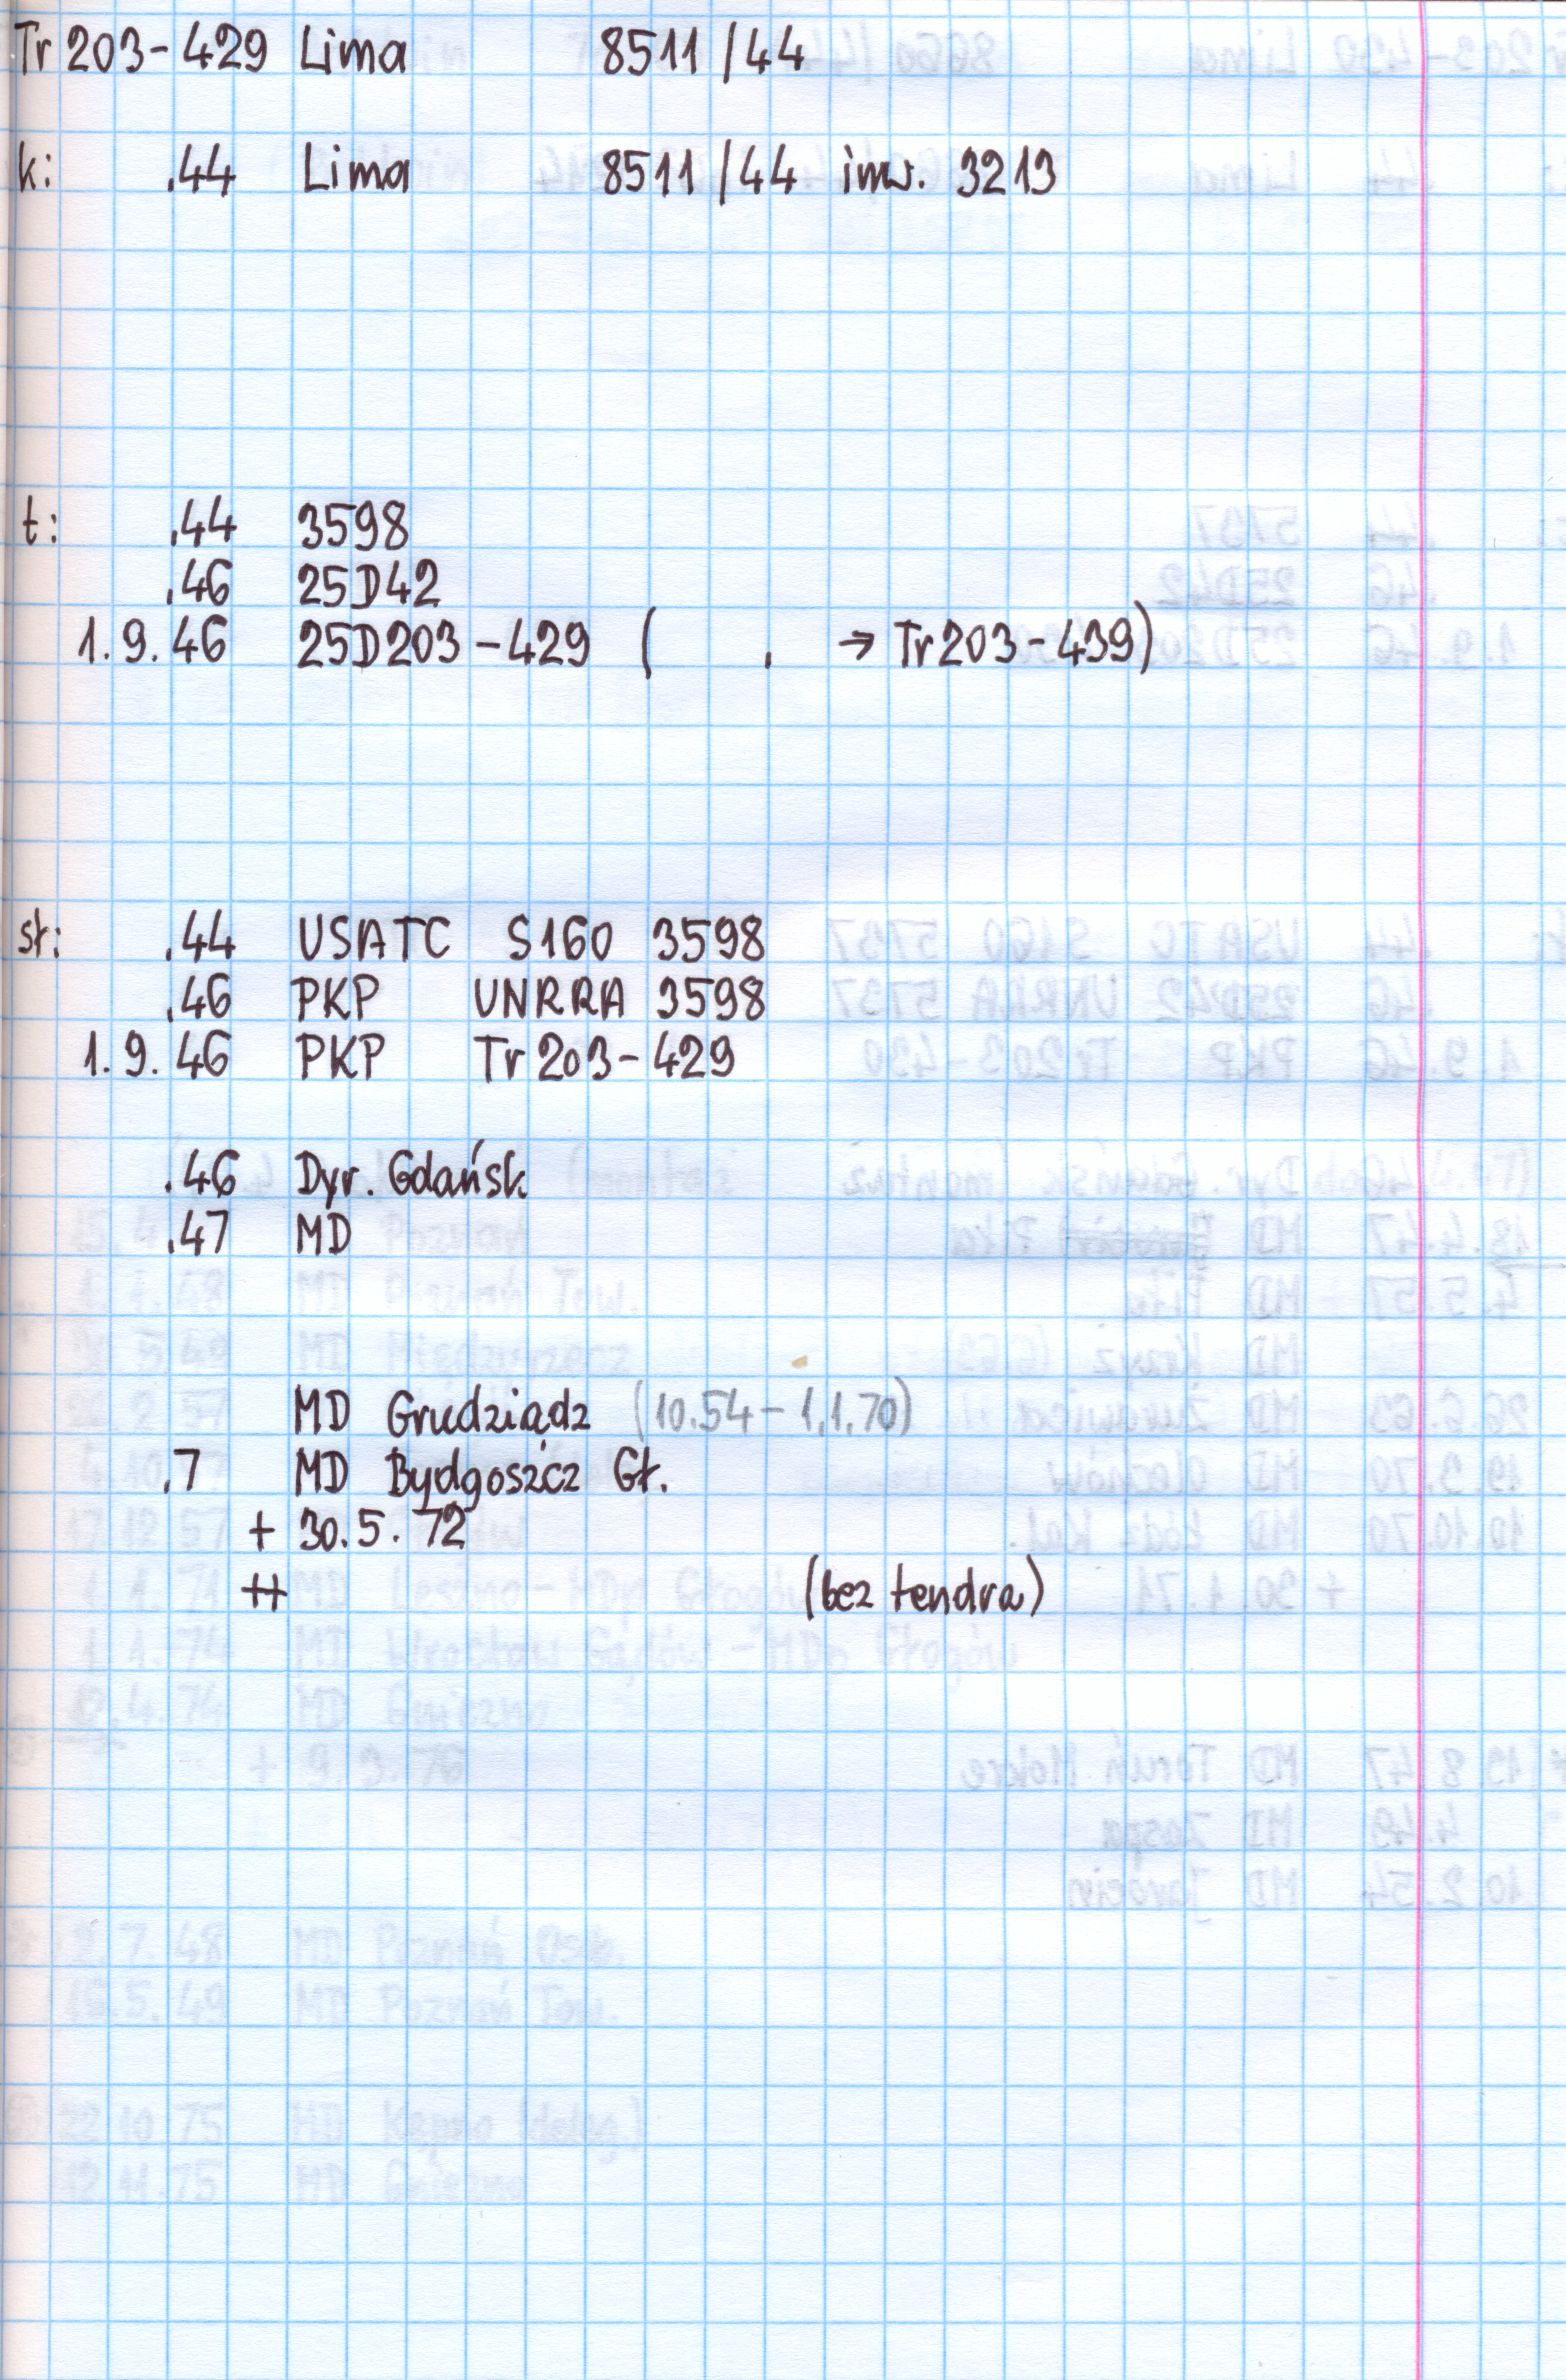 Tr 203-429 Lima 8511/44
k: .44 Lima 8511/44 inw. 3213
t: .44 3598
.46 25D42
1.9.46 25D203-429 ( . → Tr203-439)
st: .44 USATC S160 3598
.46 PKP UNRRA 3598
1.9.46 PKP Tr203-429
.46 Dyr. Gdańsk
.47 MD
MD Grudziądz (10.54-1.1.70)
.7 MD Bydgoszcz Gł.
+ 30.5.72
++ (bez tendra)